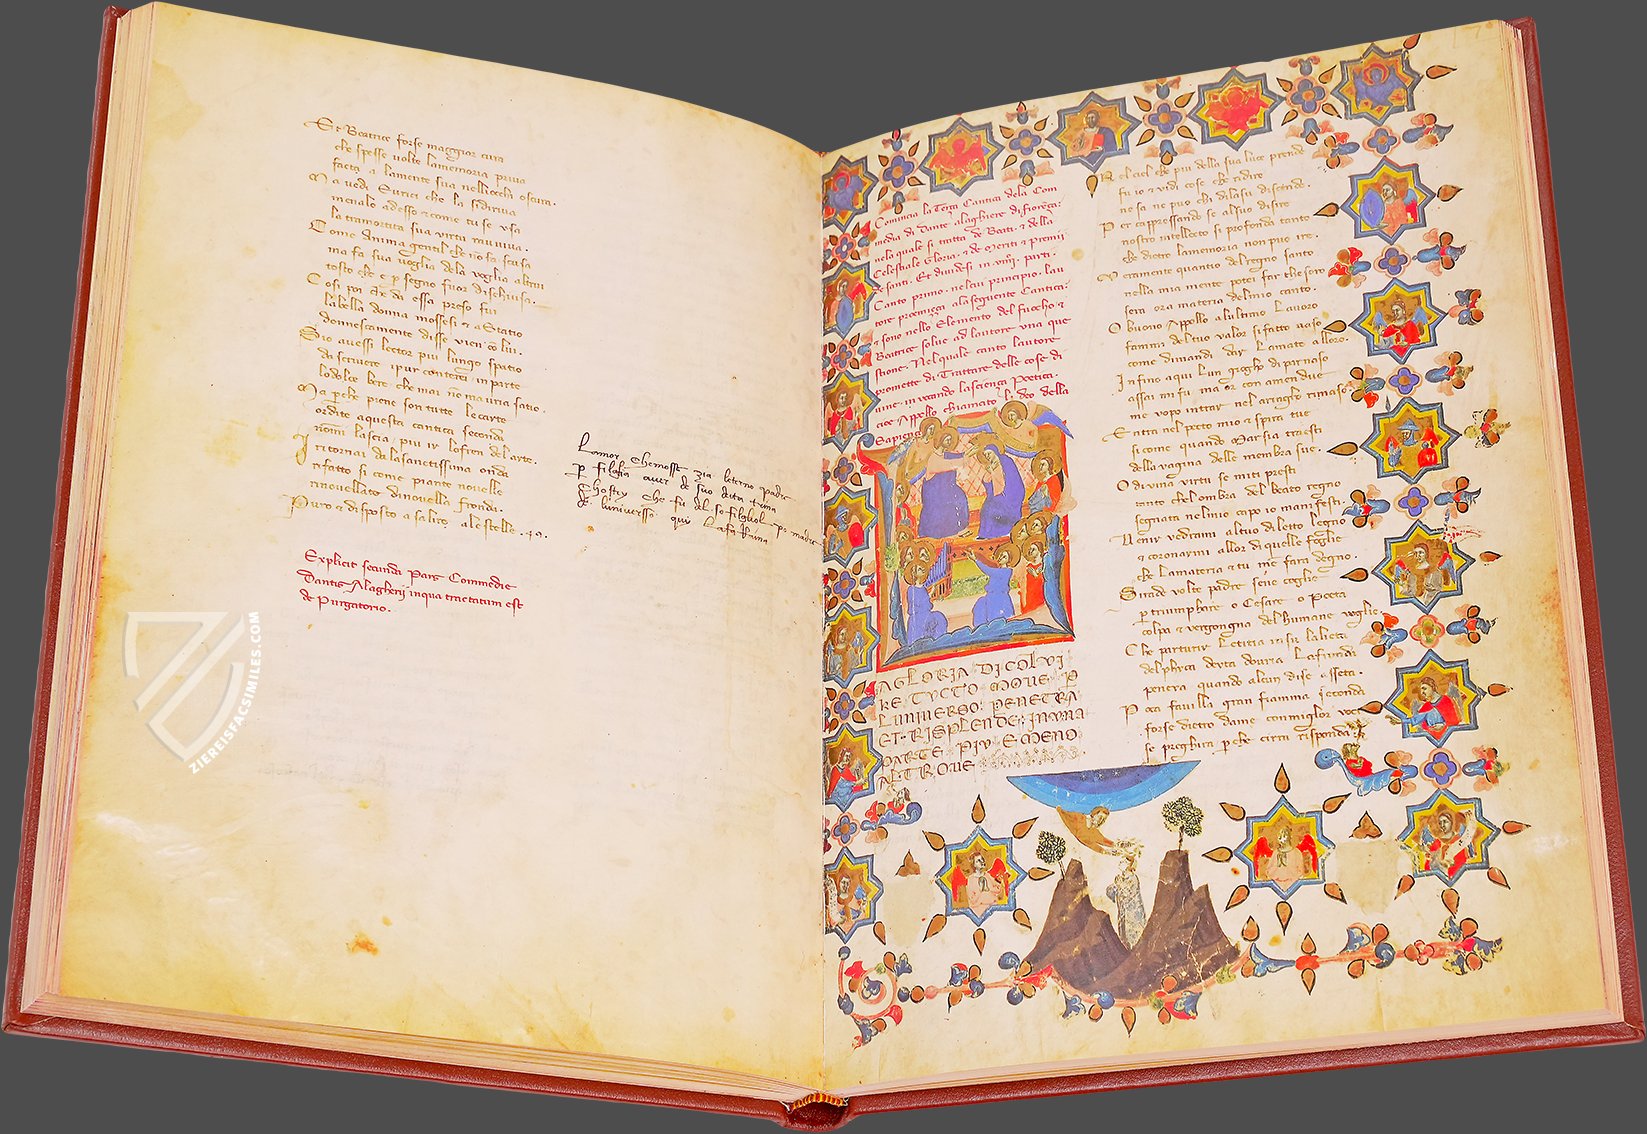 Et Beatrice forse maggior cura
che spesse uolte lamemoria priua
facta a lamente sua nelliocchi oscura.
Ma uedi Eunoe che la si diriua
menalo adesso & come tu se usa
la tramortita sua uirtu rauuiua.
Come anima gentil che nõ fa scusa
ma fa sua uoglia dela uoglia altrui
tosto che e p segno fuor dischiusa.
Cosi poi che da essa preso fui
labella donna mossesi & a Statio
donnescamente disse uien cõ lui.
Sio auessi lector piu lungo spatio
da scriuere ipur conterei in parte
lodolce bere che mai nõ mauria satio.
Ma pche piene son tutte lecarte
ordite aquesta cantica seconda
nomi lascia piu ir lofren delarte.
I ritornai dalasanctissima onda
rifatto si come piante nouelle
rinouellato dinouella fronda.
Puro & disposto a salire a le stelle.
Explicit secunda Pars Commedie
Dantis Alagherij inqua tractatum est
de Purgatorio.
Lamor chemosse zia leterno padre
p figlia auer de suo
che fu del so figliol
de luniuersso qui
Comincia la Terça Cantica dela Com
media di dante alaghiere di fiorença
nela quale si tratta de Beati & dela
Celestiale Gloria & de meriti & premii
de santi. Et diuidesi in viiij parti.
Canto primo nelcui principio lau
tore proemiçça ala seguente Cantica
& sono nello Elemento del fuocho &
Beatrice solue ad lautore una que
stione. Nelquale canto lautore
promette di Trattare delle cose di
uine inuocando lascienza Poetica
cioe Appollo chiamato lo deo della
Sapiença
LAGLORIA DICOLVI
KE TVCTO MOVE P
LUNIVERSO PENETRA
ET RISPLENDE INUNA
PARTE PIV E MENO
ALTROVE
Nel ciel che piu della sua luce prende
fu io & uidi cose che ridire
ne sa ne puo chi dilasu discende.
Per cappressando se alsuo disire
nostro intellecto si profonda tanto
che dietro lamemoria non puo ire.
Veramente quantio del regno santo
nella mia mente potei far thesoro
sera ora materia delmio canto.
O buono Appollo alultimo lauoro
fammi deltuo ualor sifatto uaso
come dimandi dar lamato alloro.
Infino aqui lun giogho di parnaso
assai mi fu ma or con amendue
me uopo intrar nel aringho rimaso
Entra nel petto mio & spira tue
si come quando Marsia traesti
della uagina delle membra sue.
O diuina uirtu se mi ti presti
tanto che lombra del beato regno
segnata nelmio capo io manifesti
Uenir uedrami al tuo diletto legno
& coronarmi allor di quelle foglie
che lamateria & tu me fara degno.
Si rade uolte padre sene coglie
p triumphare o Cesare o Poeta
colpa & uergogna del humane uoglie.
Che parturir letitia insu lalieta
delphyca deyta douria lafronda
peneya quando alcun dise asseta.
Poca fauilla gran fiamma seconda
forse dietro dame conmiglor uoci
se preghira p che cirra risponda.
ZIEREISFACSIMILES.COM